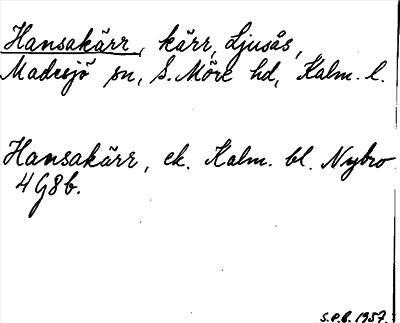 Hansakärr, kärr, Ljusås,
Madesjö sn, S. Möre hd, Kalm. l.
Hansakärr, ek. Kalm. bl. Nybro
4G8b.
S.P.B. 1957.